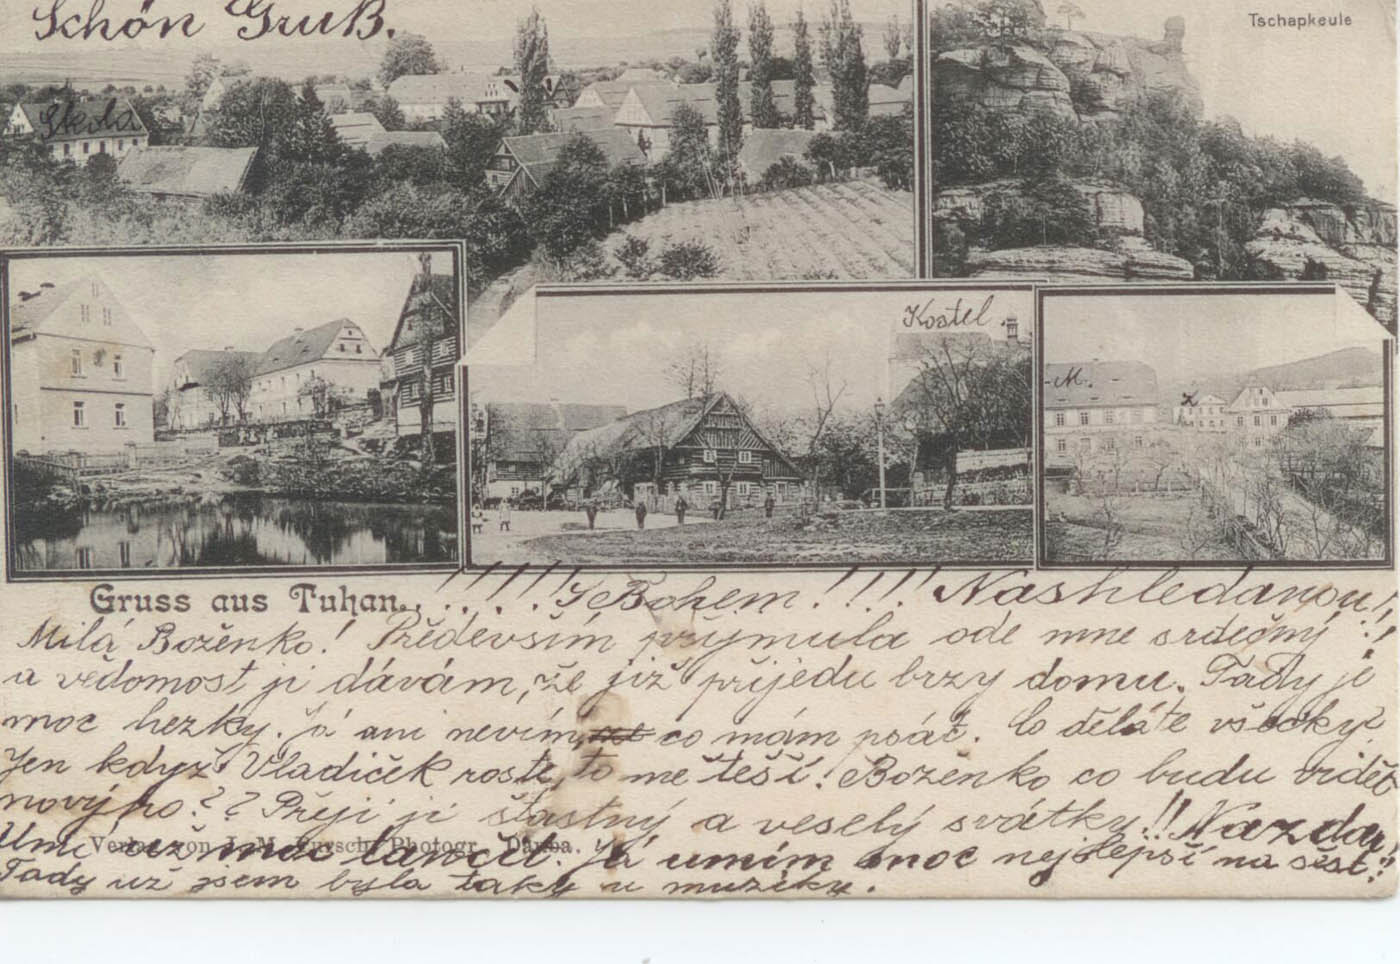 Schön Gruß.
Tschapkeule
Škola
Kostel.
M.
x
Gruss aus Tuhan.
!!!! S Bohem!!!! Nashledanou!!
Milá Boženko! Především přijmula ode mne srdečný
a vědomost ji dávám, že již přijedu brzy domu. Tady je
moc hezky. já ani nevím, co mám psát. Co děláte všecky?
Jen když Vladiček roste, to mě těší! Boženko co budu vidět
novýho?? Přeji ji šťastný a veselý svátky!! Nazdar!
Umí už moc tancet. Já umím moc nejlepší na šest!!
Verlag von J. M. Photogr. Dauba.
Tady už jsem byla taky u muziky.